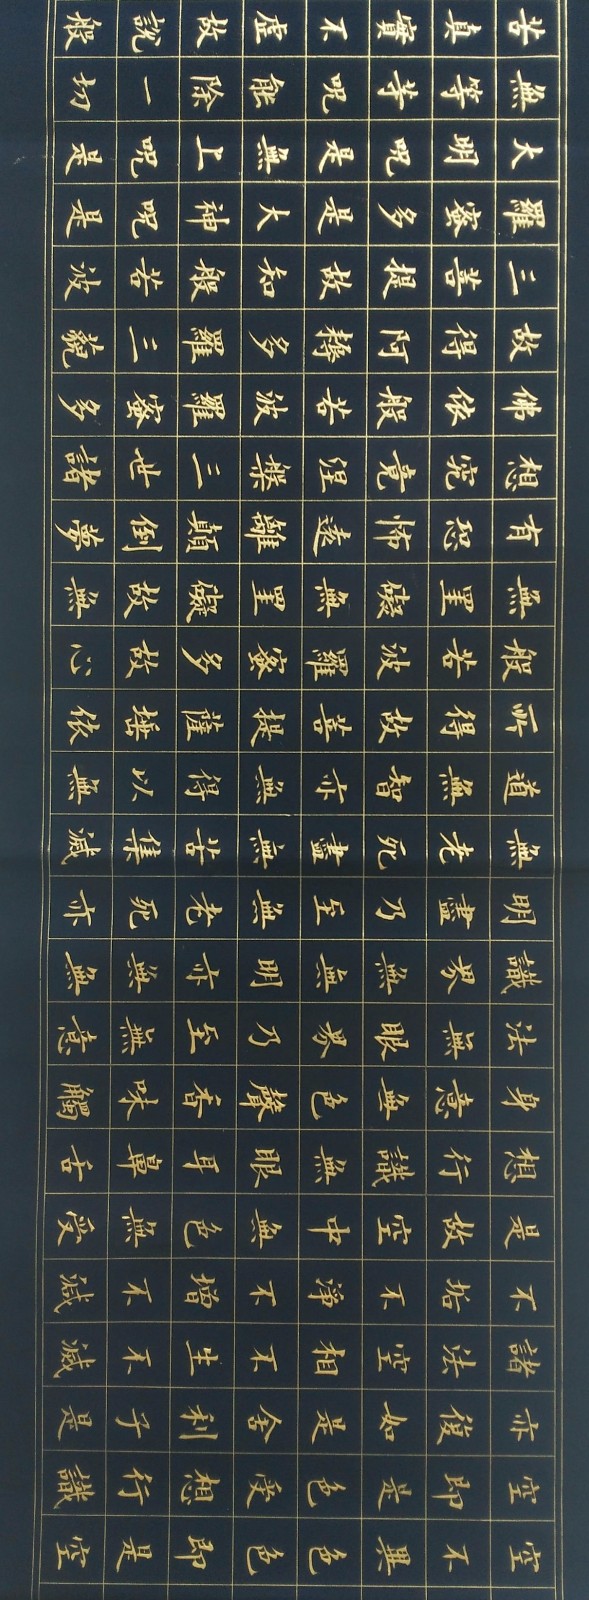 空不異色色即是空
空即是色受想行識
亦復如是舍利子是
諸法空相不生不滅
不垢不淨不增不減
是故空中無色無受
想行識無眼耳鼻舌
身意無色聲香味觸
法無眼界乃至無意
識界無無明亦無無
明盡乃至無老死亦
無老死盡無苦集滅
道無智亦無得以無
所得故菩提薩埵依
般若波羅蜜多故心
無罣礙無罣礙故無
有恐怖遠離顛倒夢
想究竟涅槃三世諸
佛依般若波羅蜜多
故得阿耨多羅三藐
三菩提故知般若波
羅蜜多是大神呪是
大明呪是無上呪是
無等等呪能除一切
苦真實不虛故說般